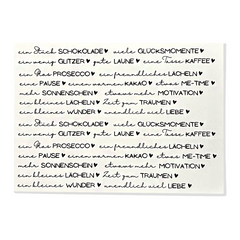 ein Stück SCHOKOLADE ♥ viele GLÜCKSMOMENTE ♥
ein wenig GLITZER ♥ gute LAUNE ♥ eine Tasse KAFFEE ♥
ein Glas PROSECCO ♥ ein freundliches LÄCHELN ♥
eine PAUSE ♥ einen warmen KAKAO ♥ etwas ME-TIME ♥
mehr SONNENSCHEIN ♥ etwas mehr MOTIVATION ♥
ein kleines LÄCHELN ♥ Zeit zum TRÄUMEN ♥
ein kleines WUNDER ♥ unendlich viel LIEBE ♥
ein Stück SCHOKOLADE ♥ viele GLÜCKSMOMENTE ♥
ein wenig GLITZER ♥ gute LAUNE ♥ eine Tasse KAFFEE ♥
ein Glas PROSECCO ♥ ein freundliches LÄCHELN ♥
eine PAUSE ♥ einen warmen KAKAO ♥ etwas ME-TIME ♥
mehr SONNENSCHEIN ♥ etwas mehr MOTIVATION ♥
ein kleines LÄCHELN ♥ Zeit zum TRÄUMEN ♥
ein kleines WUNDER ♥ unendlich viel LIEBE ♥